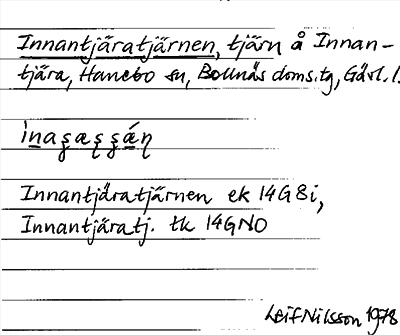 Innantjäratjärnen, tjärn å Innan-
tjära, Hanebo sn, Bollnäs doms.tg, Gävl. l.
Innantjäratjärnen ek 14G8i,
Innantjäratj. tk 14GNO
Leif Nilsson 1978